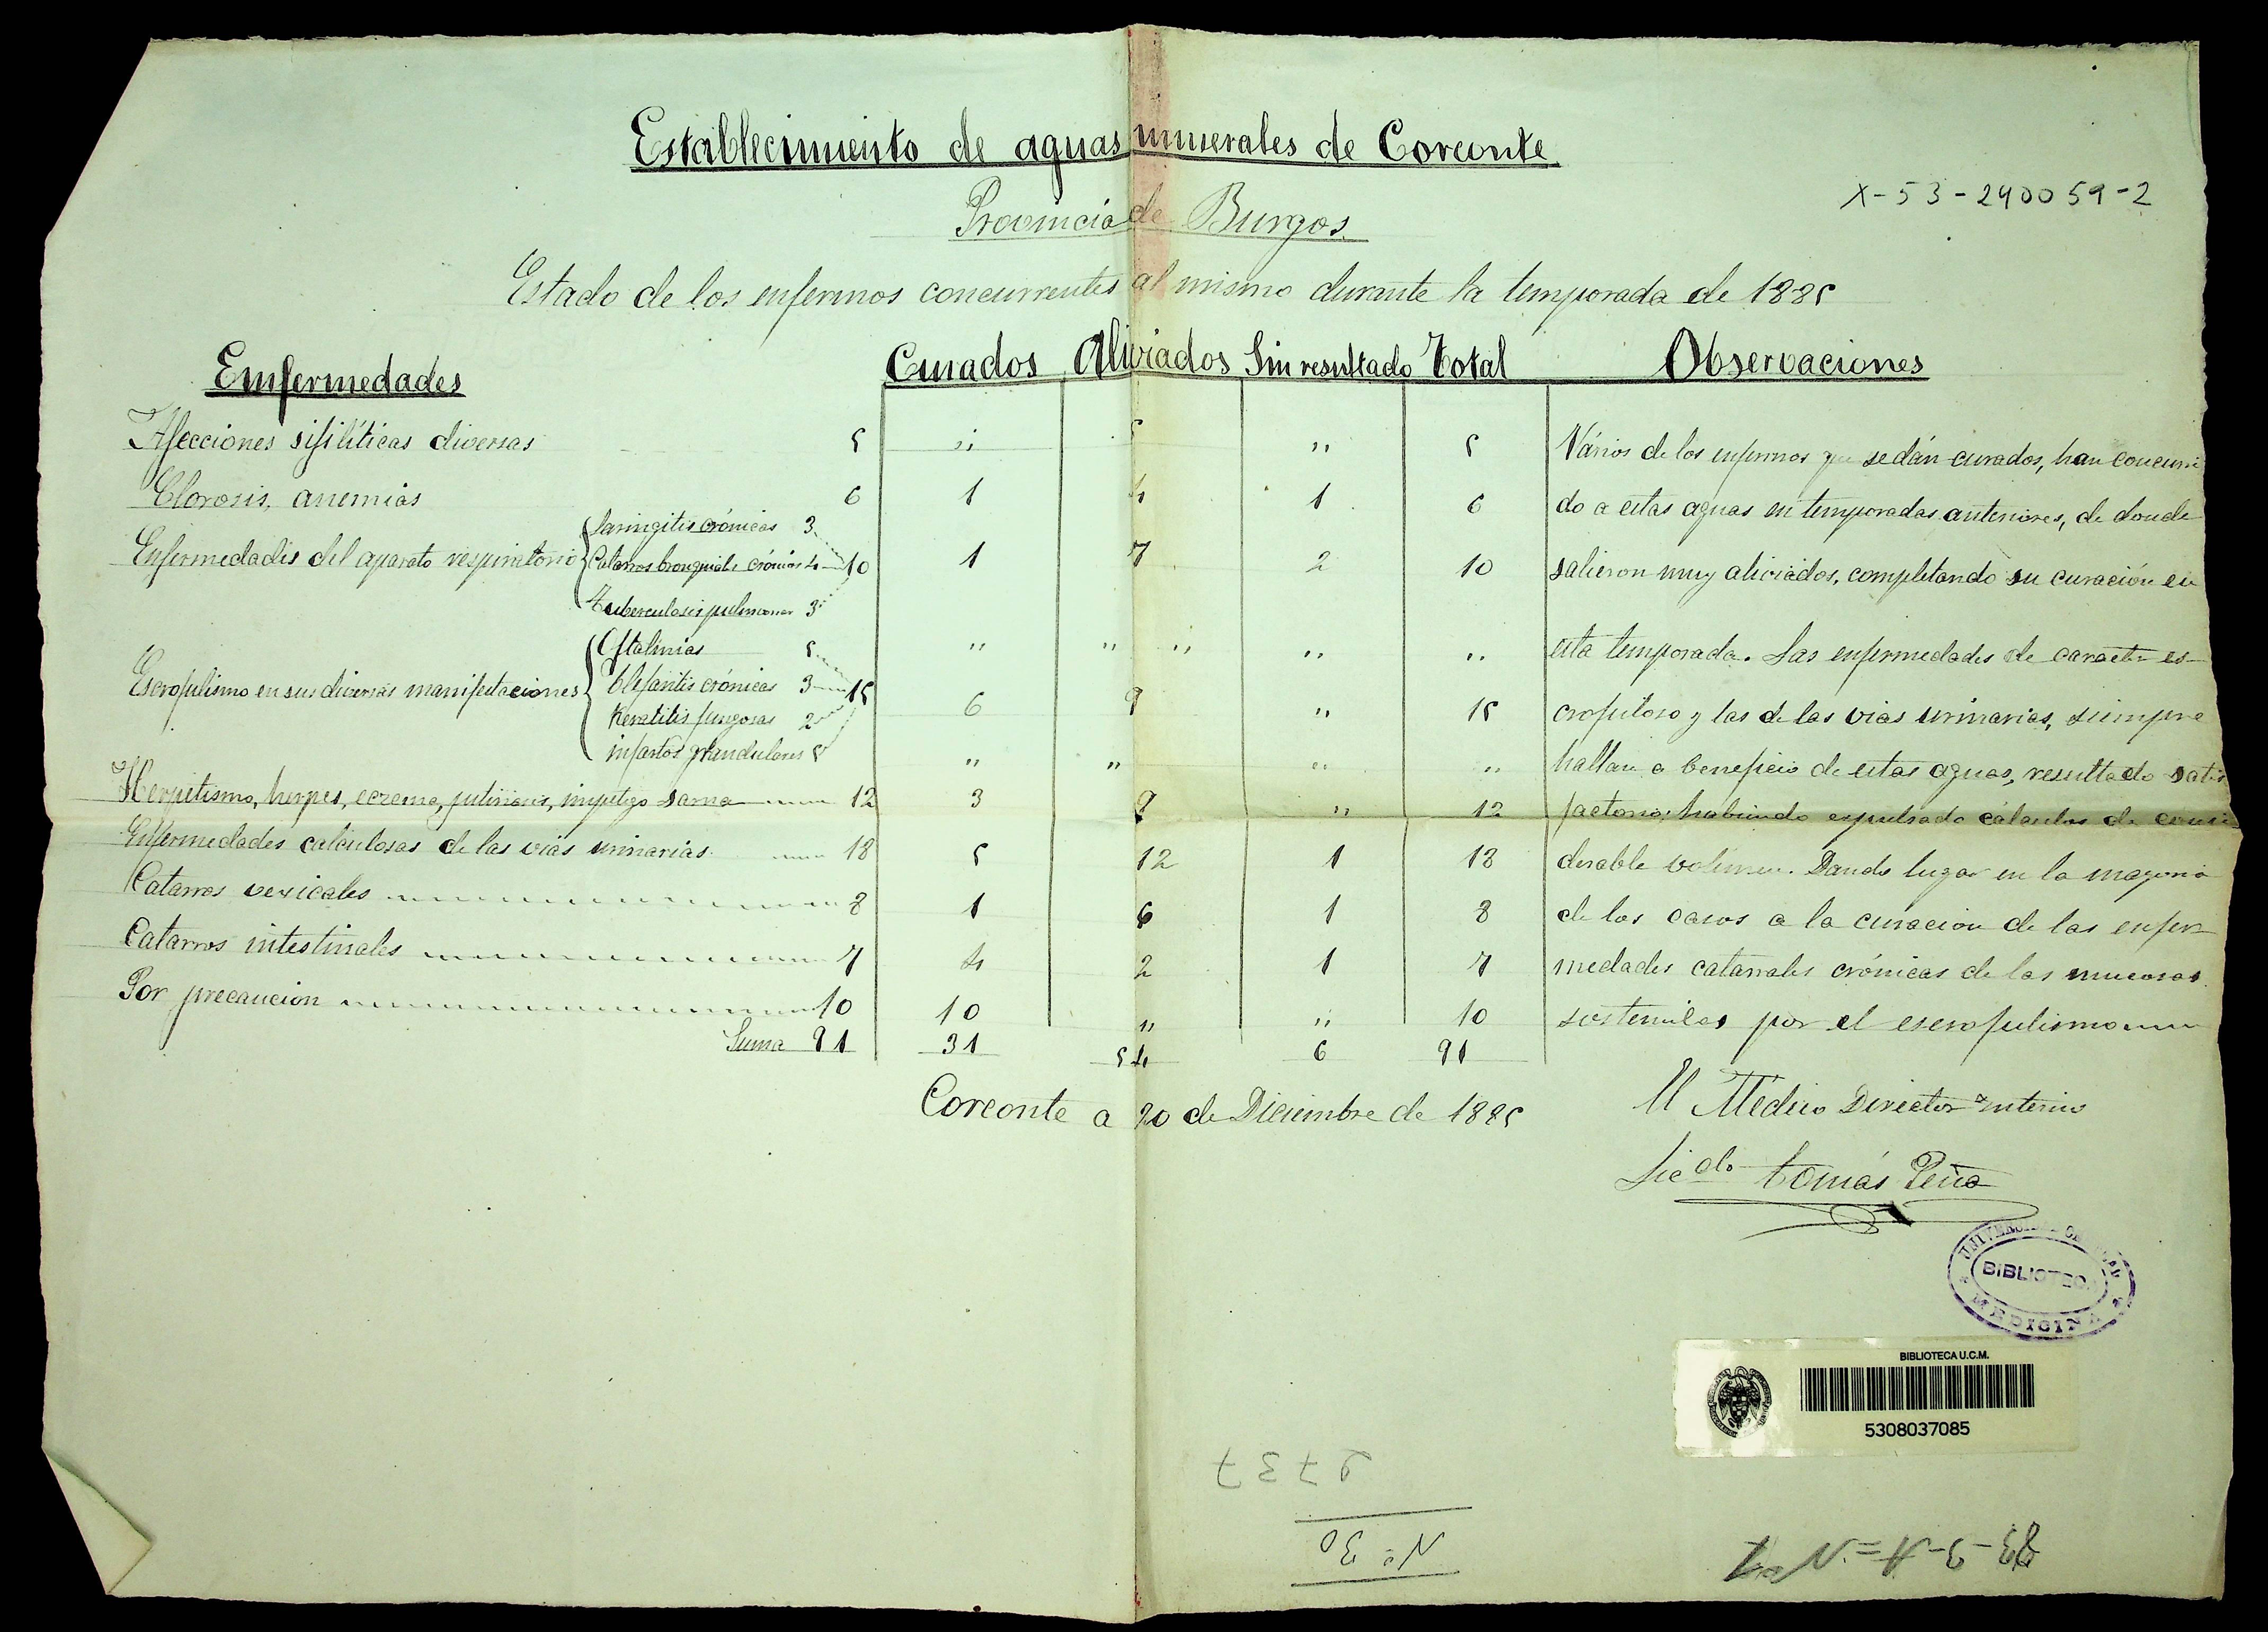 Establecimiento de aguas minerales de Corconte
X-53-240059-2
Provincia de Burgos
Estado de los enfermos concurrentes al mismo durante la temporada de 1885
Enfermedades Curados Aliviados Sin resultado Total Observaciones
Afecciones sifilíticas diversas 5 " 5 " 5 Vários de los enfermos que se dán curados, han concurri
Clorosis, anemias 6 1 4 1 6 do a estas aguas en temporadas anteriores, de donde
Laringitis crónicas 3
Enfermedades del aparato respiratorio Catarros bronquiales crónicos 4 10 1 7 2 10 salieron muy aliviados, completando su curación en
Tuberculosis pulmonar 3
Oftalmias 5 " " " " " esta temporada. Las enfermedades de caracter es-
Escrofulismo en sus diversas manifestaciones Blefaritis crónicas 3 15 6 9 " 15 crofuloso y las de las vias urinarias, siempre
Keratitis fungosas 2
infartos glandulares 5 " " " " hallan a beneficio de estas aguas, resultado satis
Herpetismo, herpes, eczema, impetigo sarna 12 3 9 " 12 factorio; habiendo expulsado cálculos de consi
Enfermedades calculosas de las vias urinarias 18 5 12 1 18 derable volúmen. Dando lugar en la mayoria
Catarros vexicales 8 1 6 1 8 de los casos a la curacion de las enfer-
Catarros intestinales 7 4 2 1 7 medades catarrales crónicas de las mucosas
Por precaucion 10 10 " " 10 sostenidas por el escrofulismo
Suma 91 31 54 6 91
Corconte a 20 de Diciembre de 1885
El Médico Director interino
Licdo Tomás Peña
UNIVERSIDAD
BIBLIOTECA
MEDICINA
BIBLIOTECA U.C.M.
5308037085
Nº 30